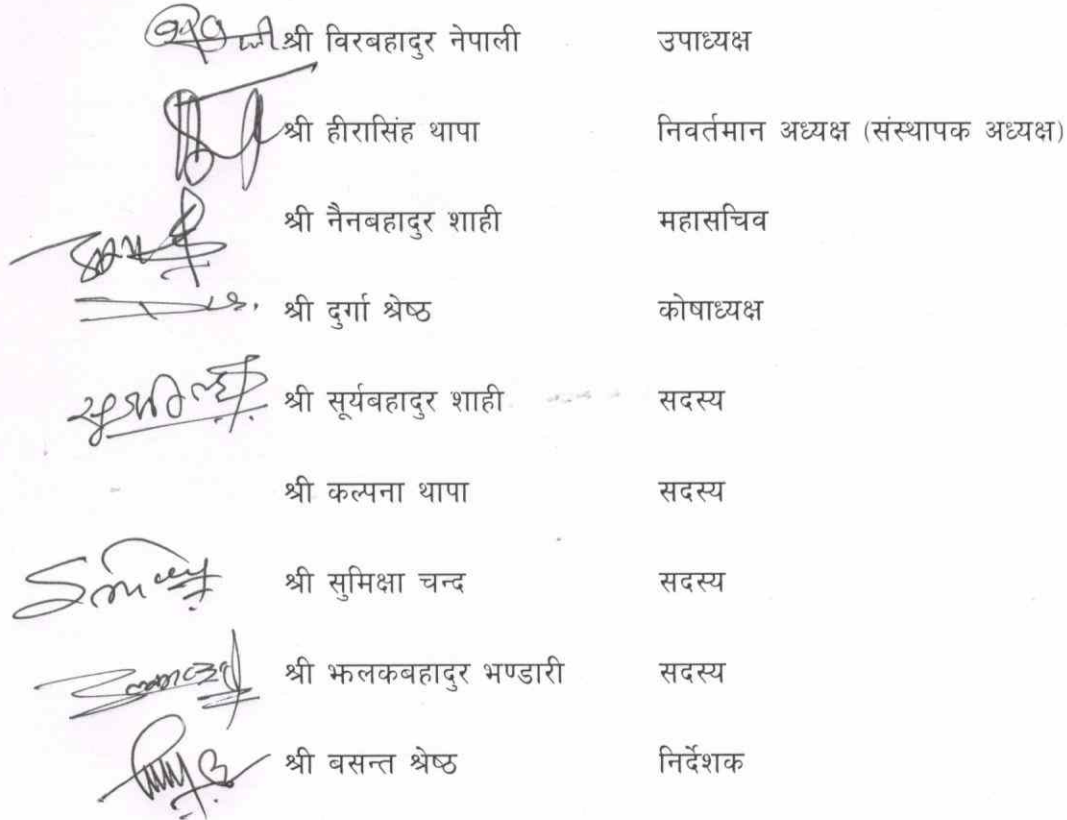 श्री विरबहादुर नेपाली उपाध्यक्ष
श्री हीरासिंह थापा निवर्तमान अध्यक्ष (संस्थापक अध्यक्ष)
श्री नैनबहादुर शाही महासचिव
श्री दुर्गा श्रेष्ठ कोषाध्यक्ष
श्री सूर्यबहादुर शाही सदस्य
श्री कल्पना थापा सदस्य
श्री सुमिक्षा चन्द सदस्य
श्री झलकबहादुर भण्डारी सदस्य
श्री बसन्त श्रेष्ठ निर्देशक